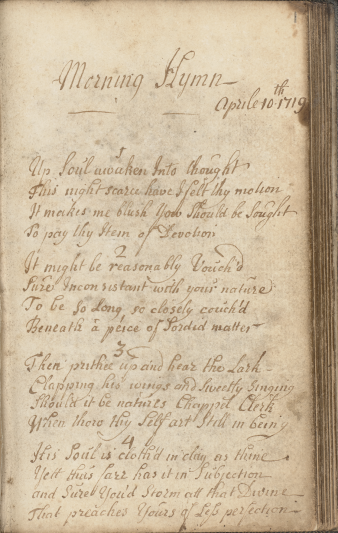 Morning Hymn
Aprile 10th 1719
1
Up Soul awaken Into thought
This night scarce have I felt thy motion
It makes me blush You Should be Sought
To pay thy Item of Devotion
2
It might be reasonably Vouch'd
Sure Inconsistant with your nature
To be So Long so closely couch'd
Beneath a peice of Sordid matter
3
Then prithee up and hear the Lark
Clapping his wings and Sweetly Singing
Should it be natures Chappel Clerk
When thow thy Self art Still in being
4
His Soul is cloth'd in clay as thine
Yett thus farr has it in Subjection
and Sure You'd Storm all that Divine
That preaches Yours of Less perfection